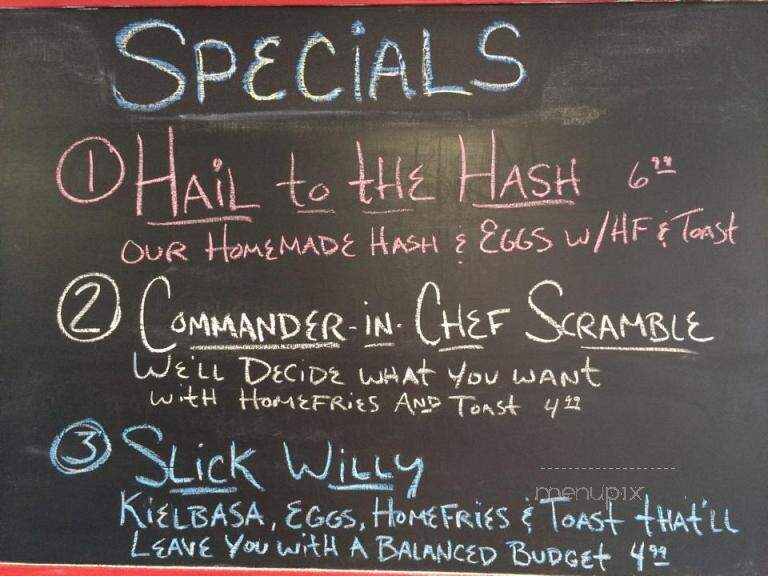 SPECiALS
① HAiL to tHE HASH 6⁹⁹
OUR HOMEMADE HASH & EGGS W/HF & TOAST
② COMMANDER-IN-CHEF SCRAMBLE
WE'LL DECIDE WHAT YOU WANT
WITH HOMEFRIES AND TOAST 4⁹⁹
③ SLICK WILLY
KIELBASA, EGGS, HOMEFRIES & TOAST THAT'LL
LEAVE YOU WITH A BALANCED BUDGET 4⁹⁹
menupix